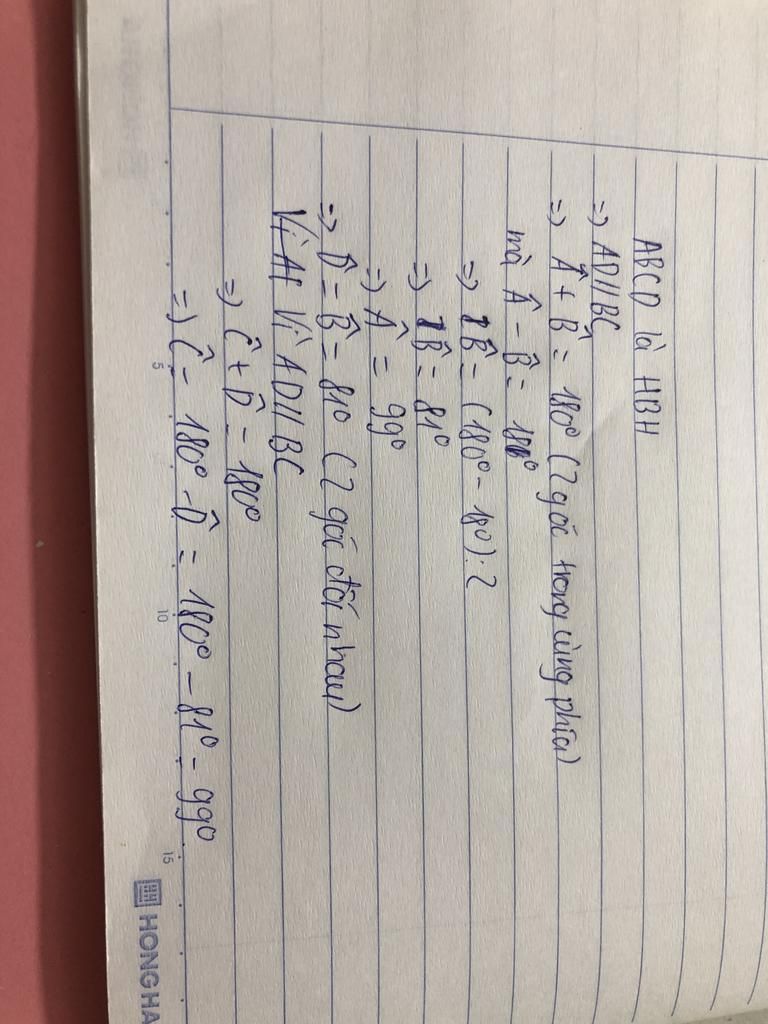 ABCD là HBH
=> AD//BC
=> Â + B̂ = 180° (2 góc trong cùng phía)
mà Â - B̂ = 18°
=> B̂ = (180° - 18°):2
=> B̂ = 81°
=> Â = 99°
=> D̂ = B̂ = 81° (2 góc đối nhau)
Vì AD//BC
=> Ĉ + D̂ = 180°
=> Ĉ = 180° - D̂ = 180° - 81° = 99°
5 10 15
HONG HA